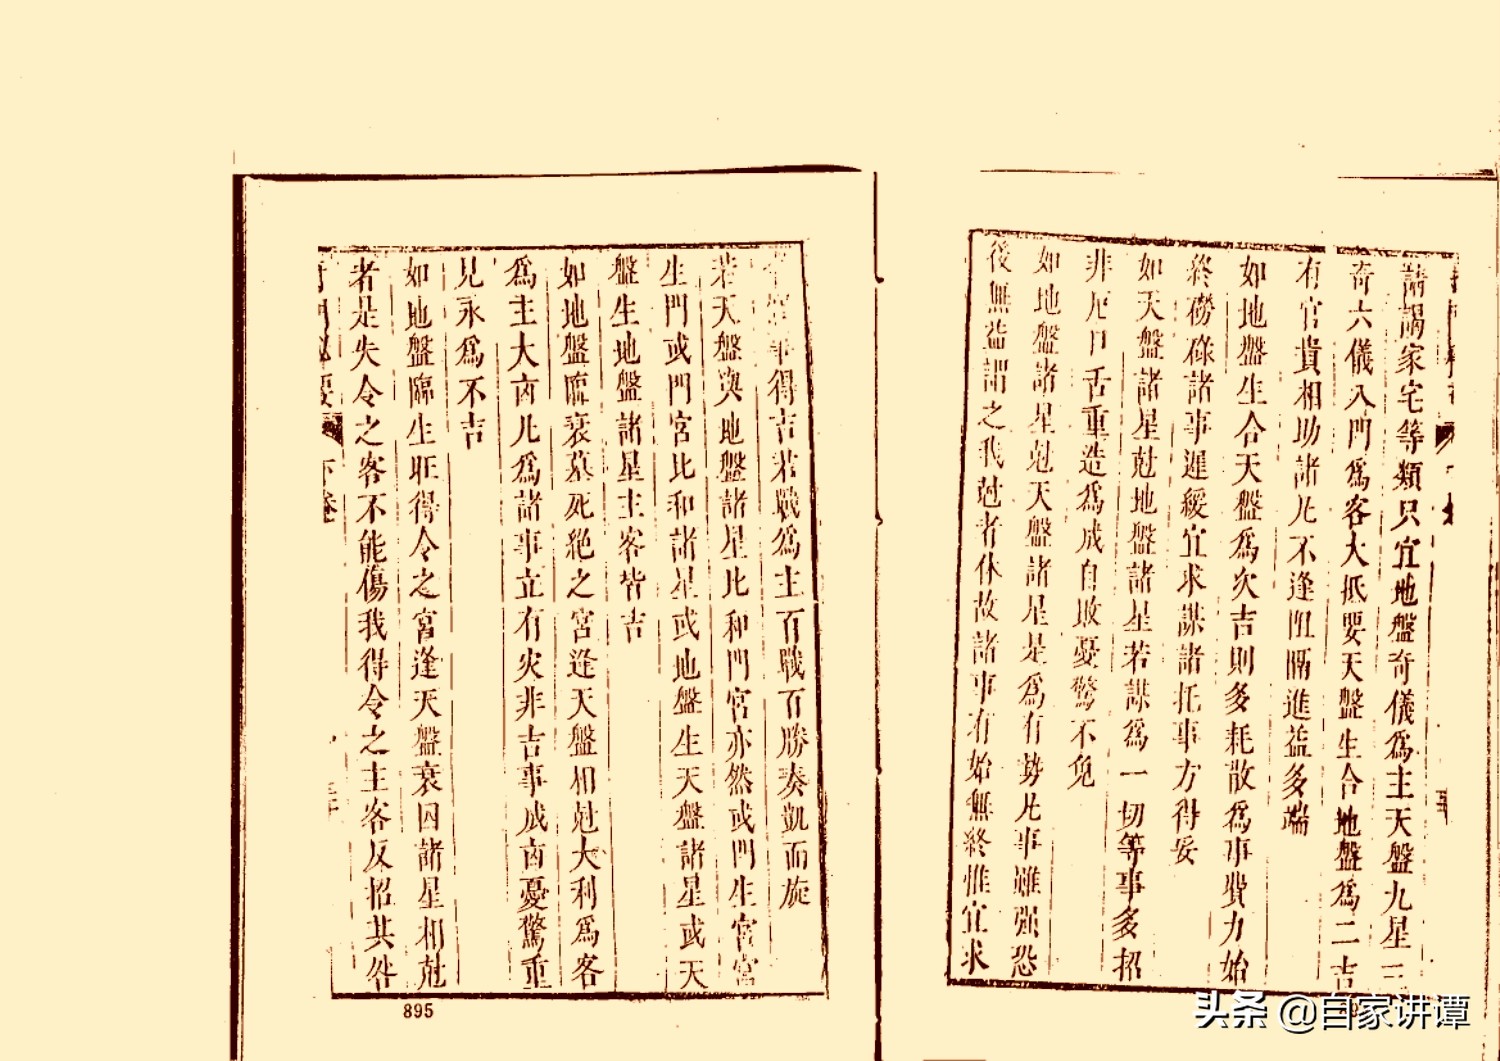 請謁家宅等類只宜地盤奇儀爲主天盤九星三
奇六儀八門爲客大抵要天盤生合地盤爲二吉
有官貴相助諸凡不逢阻隔進益多端
如地盤生合天盤爲次吉則多耗散爲事費力始
終磱碌諸事遲緩宜求謀諸托事方得妥
如天盤諸星尅地盤諸星若謀爲一切等事多招
非厄口舌重造爲成自敗憂驚不免
如地盤諸星尅天盤諸星是爲有勢凡事雖强恐
後無益謂之我尅者休故諸事有始無終惟宜求
得吉若戰爲主百戰百勝奏凱而旋
若天盤與地盤諸星比和門宮亦然或門生宮宮
生門或門宮比和諸星或地盤生天盤諸星或天
盤生地盤諸星主客皆吉
如地盤臨衰墓死絶之宮逢天盤相尅大利爲客
爲主大凶凡爲諸事立有灾非吉事成凶憂驚重
見永爲不吉
如地盤臨生旺得令之宮逢天盤衰囚諸星相尅
者是失令之客不能傷我得令之主客反招其咎
下卷
895
头条 @自家讲谭